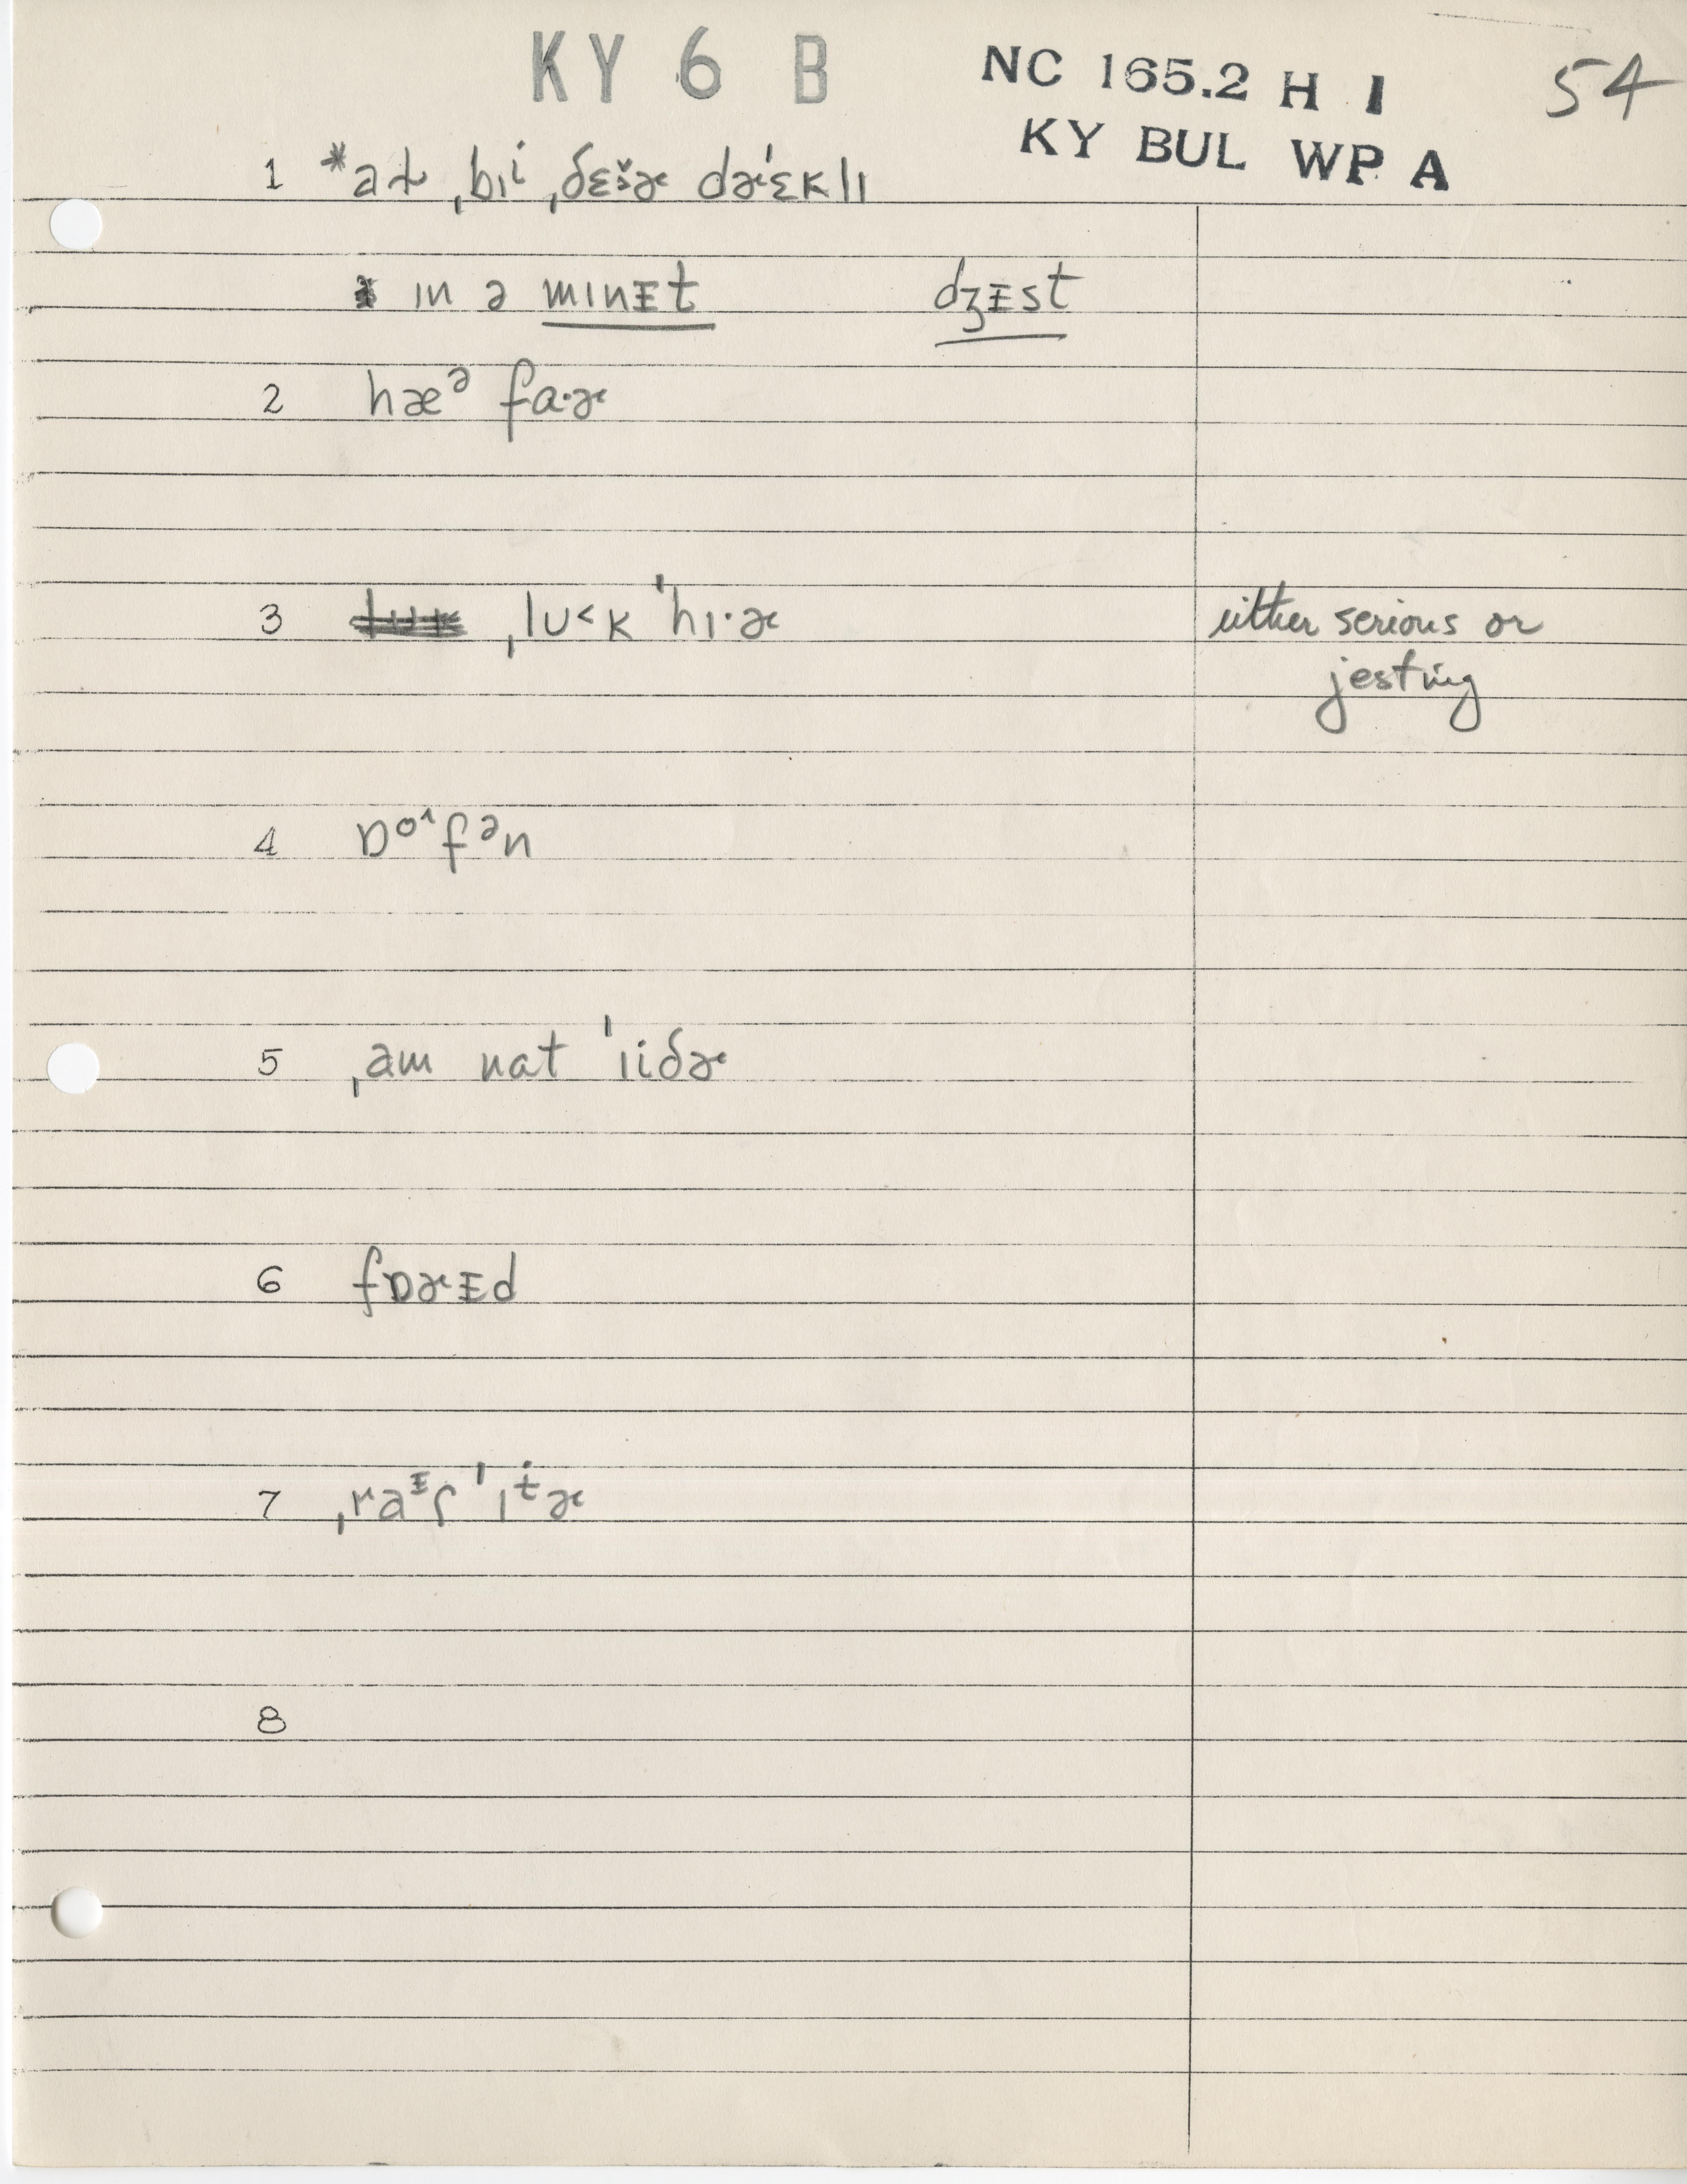 KY 6 B
NC 165.2 H I
KY BUL WP A
54
1 *aɫ ˌbɪⁱ ˌðɛə̆ɚ dɚˈɛklɪ
ɪn ə mɪnᵻt dʒᵻst
2 hæᵊ fa·ɚ
3 ˌlʊ˂k ˈhɪ·ɚ either serious or
jesting
4 ɒᵒ˄fᵊn
5 ˌam nat ˈiiðɚ
6 fɒɚᵻd
7 ˌraᵻʃ ˈɪt̬ɚ
8